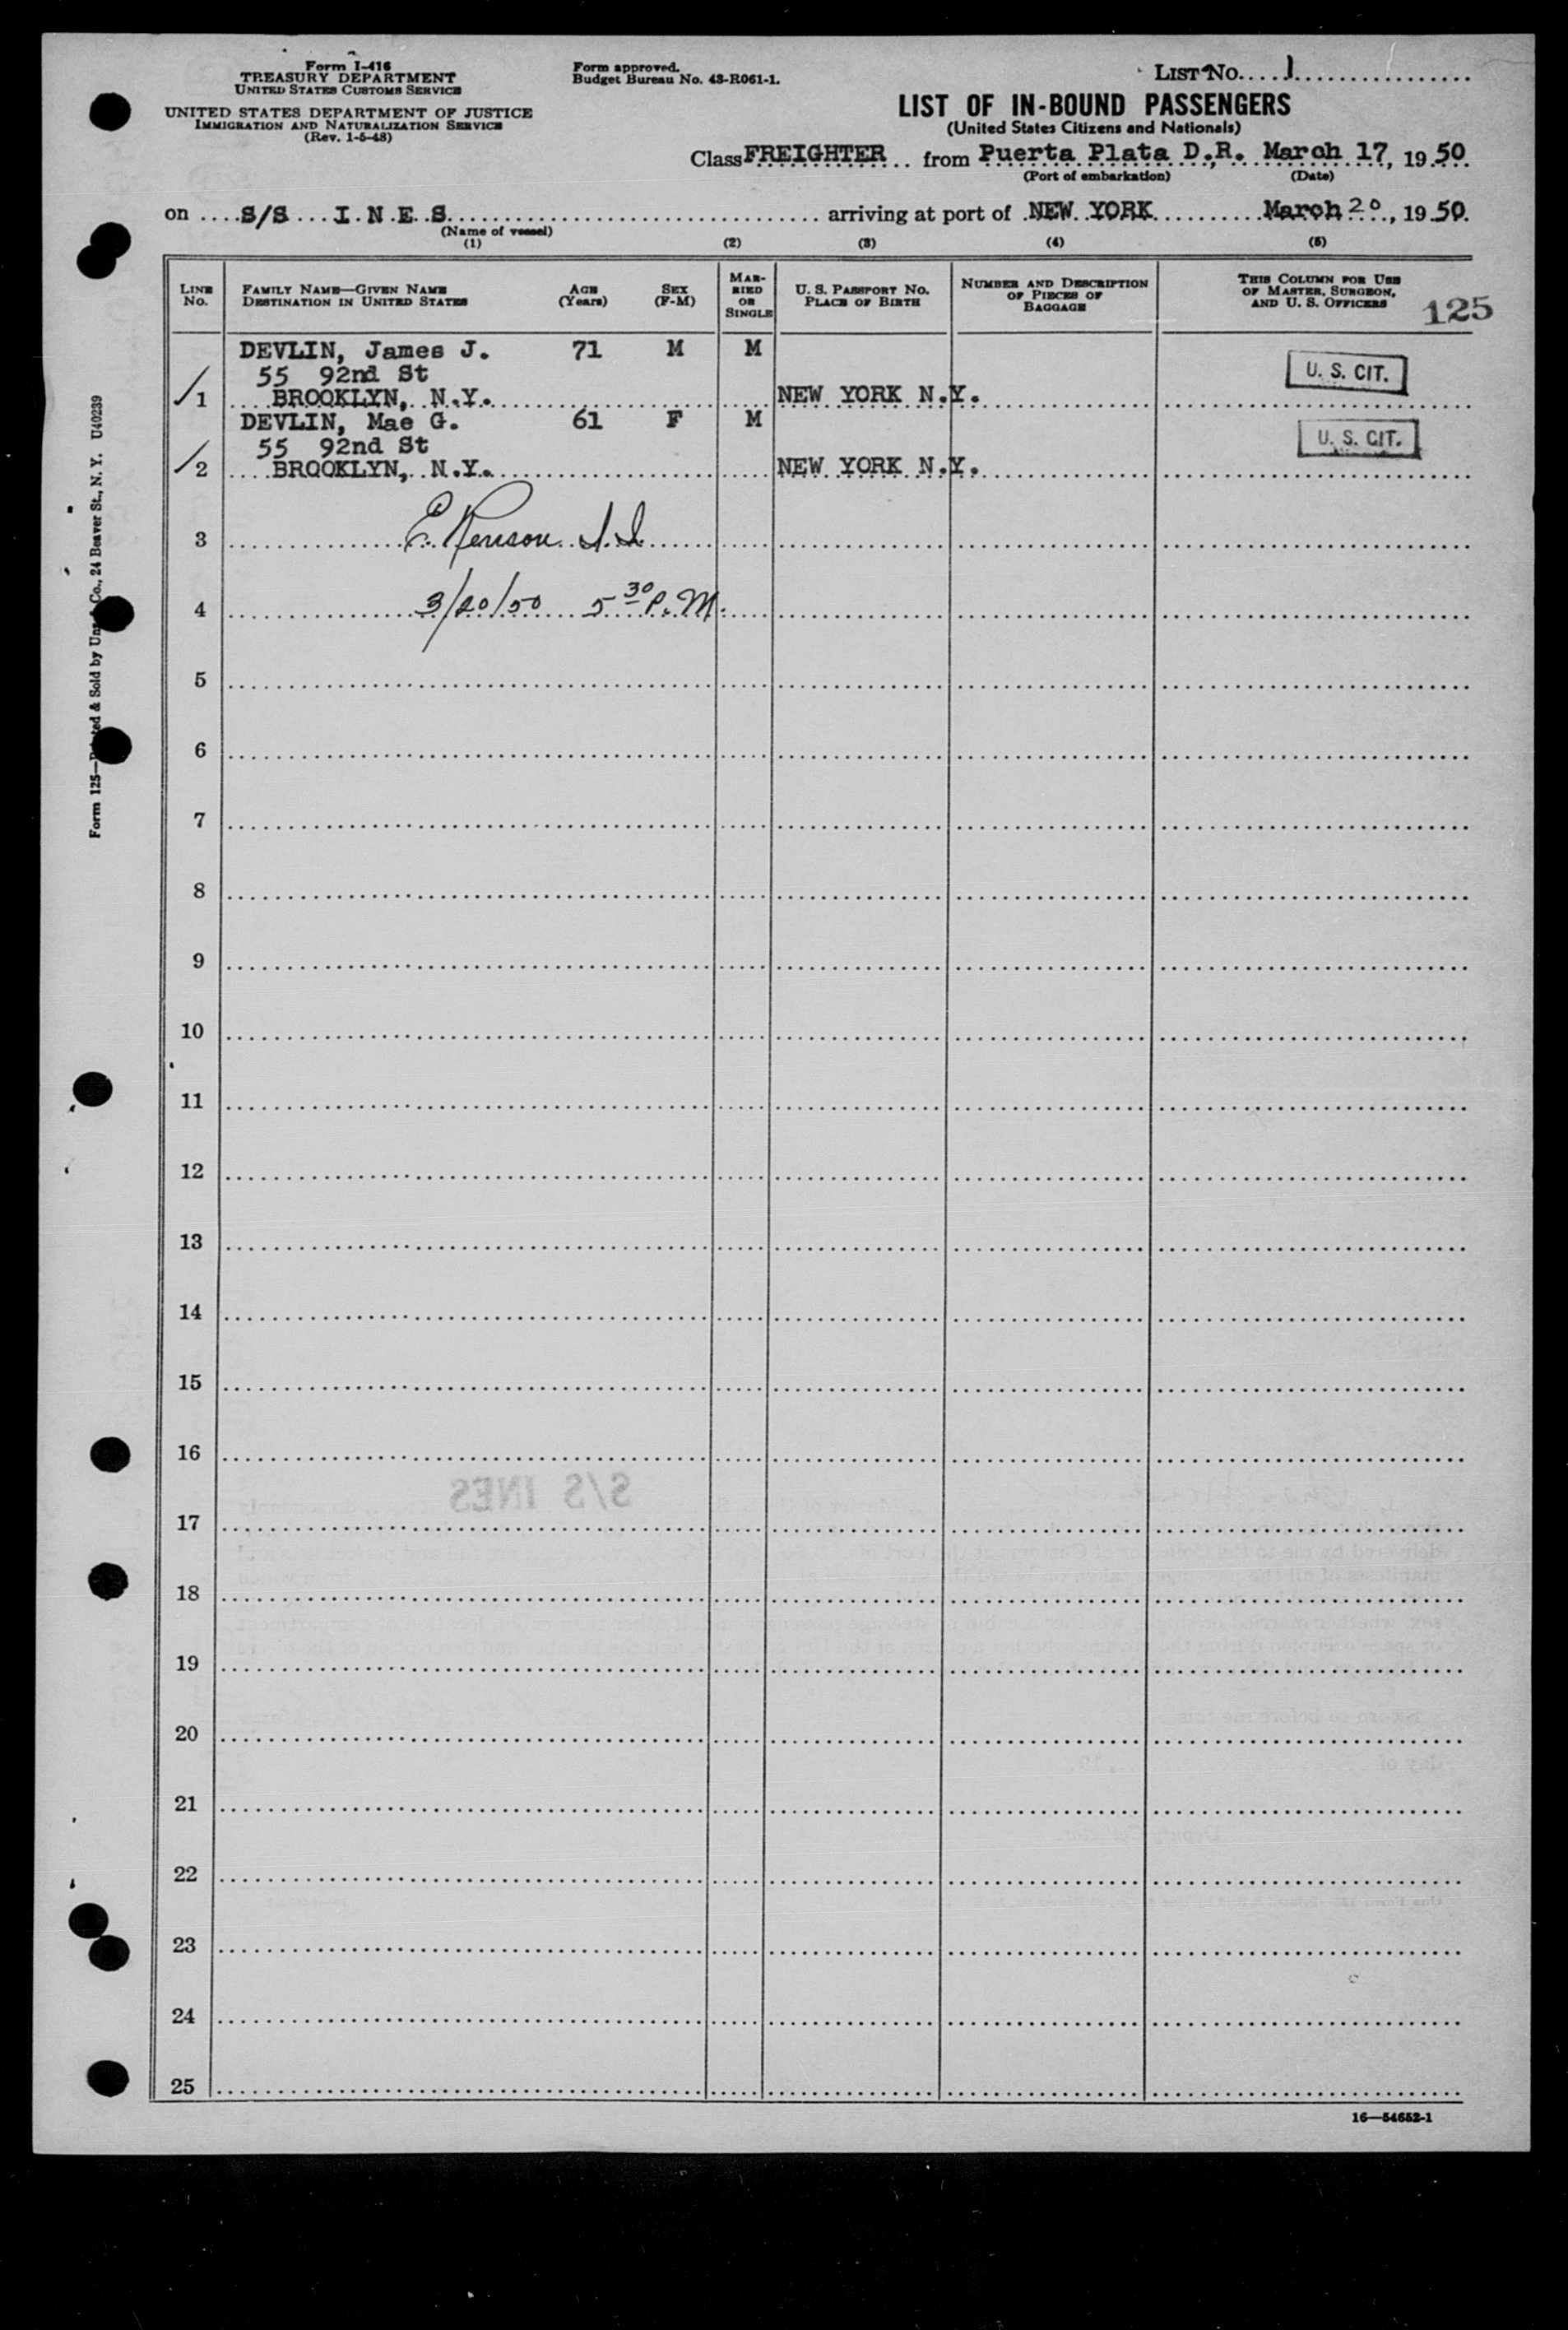 Form I-416
TREASURY DEPARTMENT
UNITED STATES CUSTOMS SERVICE
UNITED STATES DEPARTMENT OF JUSTICE
IMMIGRATION AND NATURALIZATION SERVICE
(Rev. 1-5-48)
Form approved.
Budget Bureau No. 43-R061-1.
LIST No. 1
LIST OF IN-BOUND PASSENGERS
(United States Citizens and Nationals)
Class FREIGHTER from Puerta Plata D.R. March 17, 1950
(Port of embarkation) (Date)
on S/S I.N.E.S. arriving at port of NEW YORK March 20, 1950.
(Name of vessel)
(1) (2) (3) (4) (5)
LINE No. FAMILY NAME—GIVEN NAME DESTINATION IN UNITED STATES AGE (Years) SEX (F-M) MARRIED OR SINGLE U. S. PASSPORT NO. PLACE OF BIRTH NUMBER AND DESCRIPTION OF PIECES OF BAGGAGE THIS COLUMN FOR USE OF MASTER, SURGEON, AND U. S. OFFICERS 125
DEVLIN, James J. 71 M M
55 92nd St U. S. CIT.
1 BROOKLYN, N.Y. NEW YORK N.Y.
DEVLIN, Mae G. 61 F M
55 92nd St U. S. CIT.
2 BROOKLYN, N.Y. NEW YORK N.Y.
3 E.
4 3/20/50 5 30 P.M.
5
6
7
8
9
10
11
12
13
14
15
16
S/S INES
17
18
19
20
21
22
23
24
25
16—54652-1
Form 125—Printed & Sold by Co., 24 Beaver St., N. Y. U40239